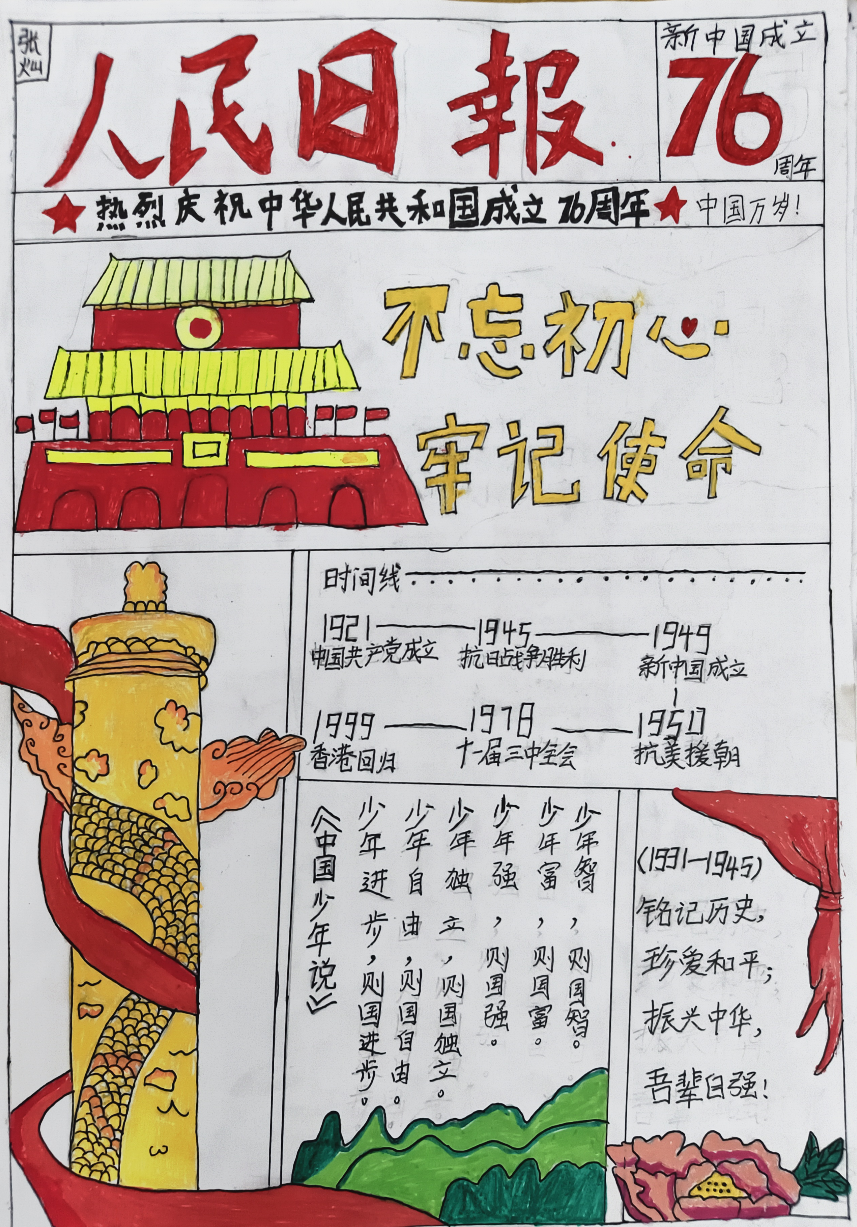 张灿
人民日報
新中国成立
76
周年
热烈庆祝中华人民共和国成立76周年
中国万岁!
不忘初心
牢记使命
时间线
1921
1945
1949
中国共产党成立
抗日战争胜利
新中国成立
1999
1978
1950
香港回归
十一届三中全会
抗美援朝
少年智,则国智。
少年富,则国富。
少年强,则国强。
少年独立,则国独立。
少年自由,则国自由。
少年进步,则国进步。
《中国少年说》
(1931—1945)
铭记历史,
珍爱和平;
振兴中华,
吾辈自强!